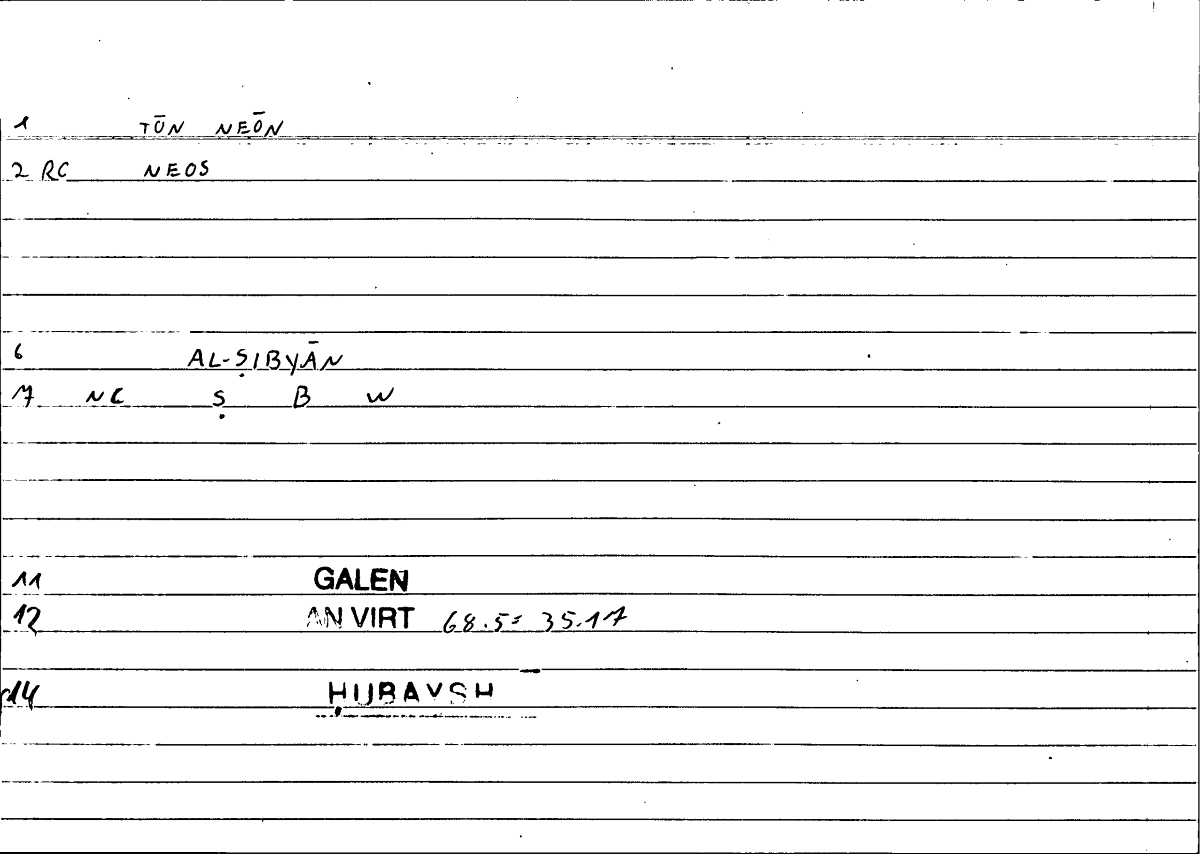 1 TŌN NEŌN
2 RC NEOS
6 AL-ṢIBYĀN
7 NC Ṣ B W
11 GALEN
12 AN VIRT 68.5= 35.17
14 ḤUBAYSH